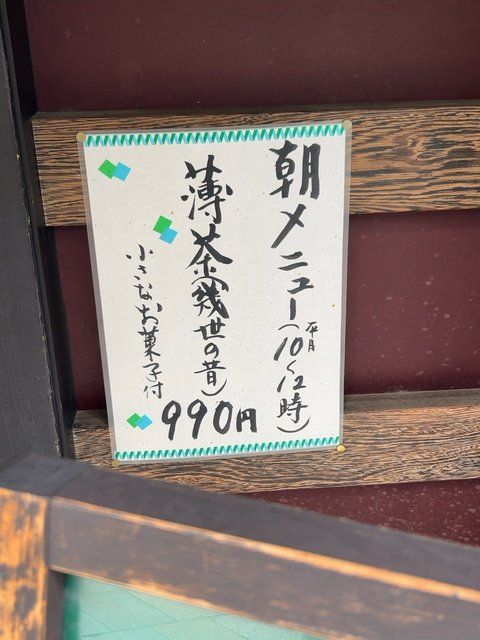 朝メニュー(平日10〜12時)
薄茶(幾世の昔)
小さなお菓子付
990円